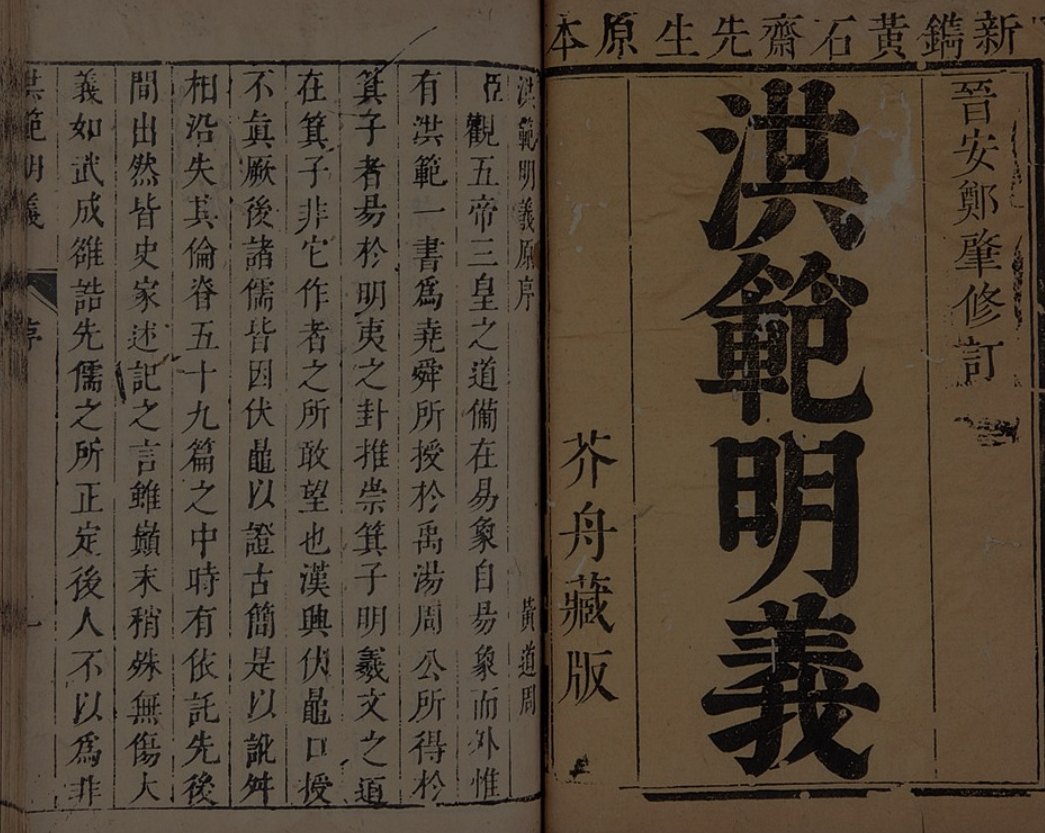 新鐫黄石齋先生原本
晉安鄭肇修訂
洪範明義
芥舟藏版
洪範明義原序
黄道周
臣觀五帝三皇之道備在易象自易象而外惟
有洪範一書爲堯舜所授於禹湯周公所得於
箕子者易於明夷之卦推崇箕子明羲文之道
在箕子非它作者之所敢望也漢興伏鼂口授
不眞厥後諸儒皆因伏鼂以證古簡是以訛舛
相沿失其倫脊五十九篇之中時有依託先後
間出然皆史家述記之言雖巔末稍殊無傷大
義如武成雒誥先儒之所正定後人不以爲非
洪範明義
序
一